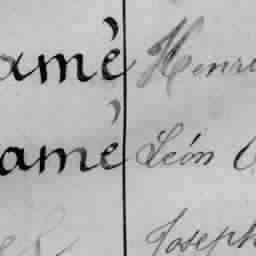 amè Henri
amé Léon
Joseph